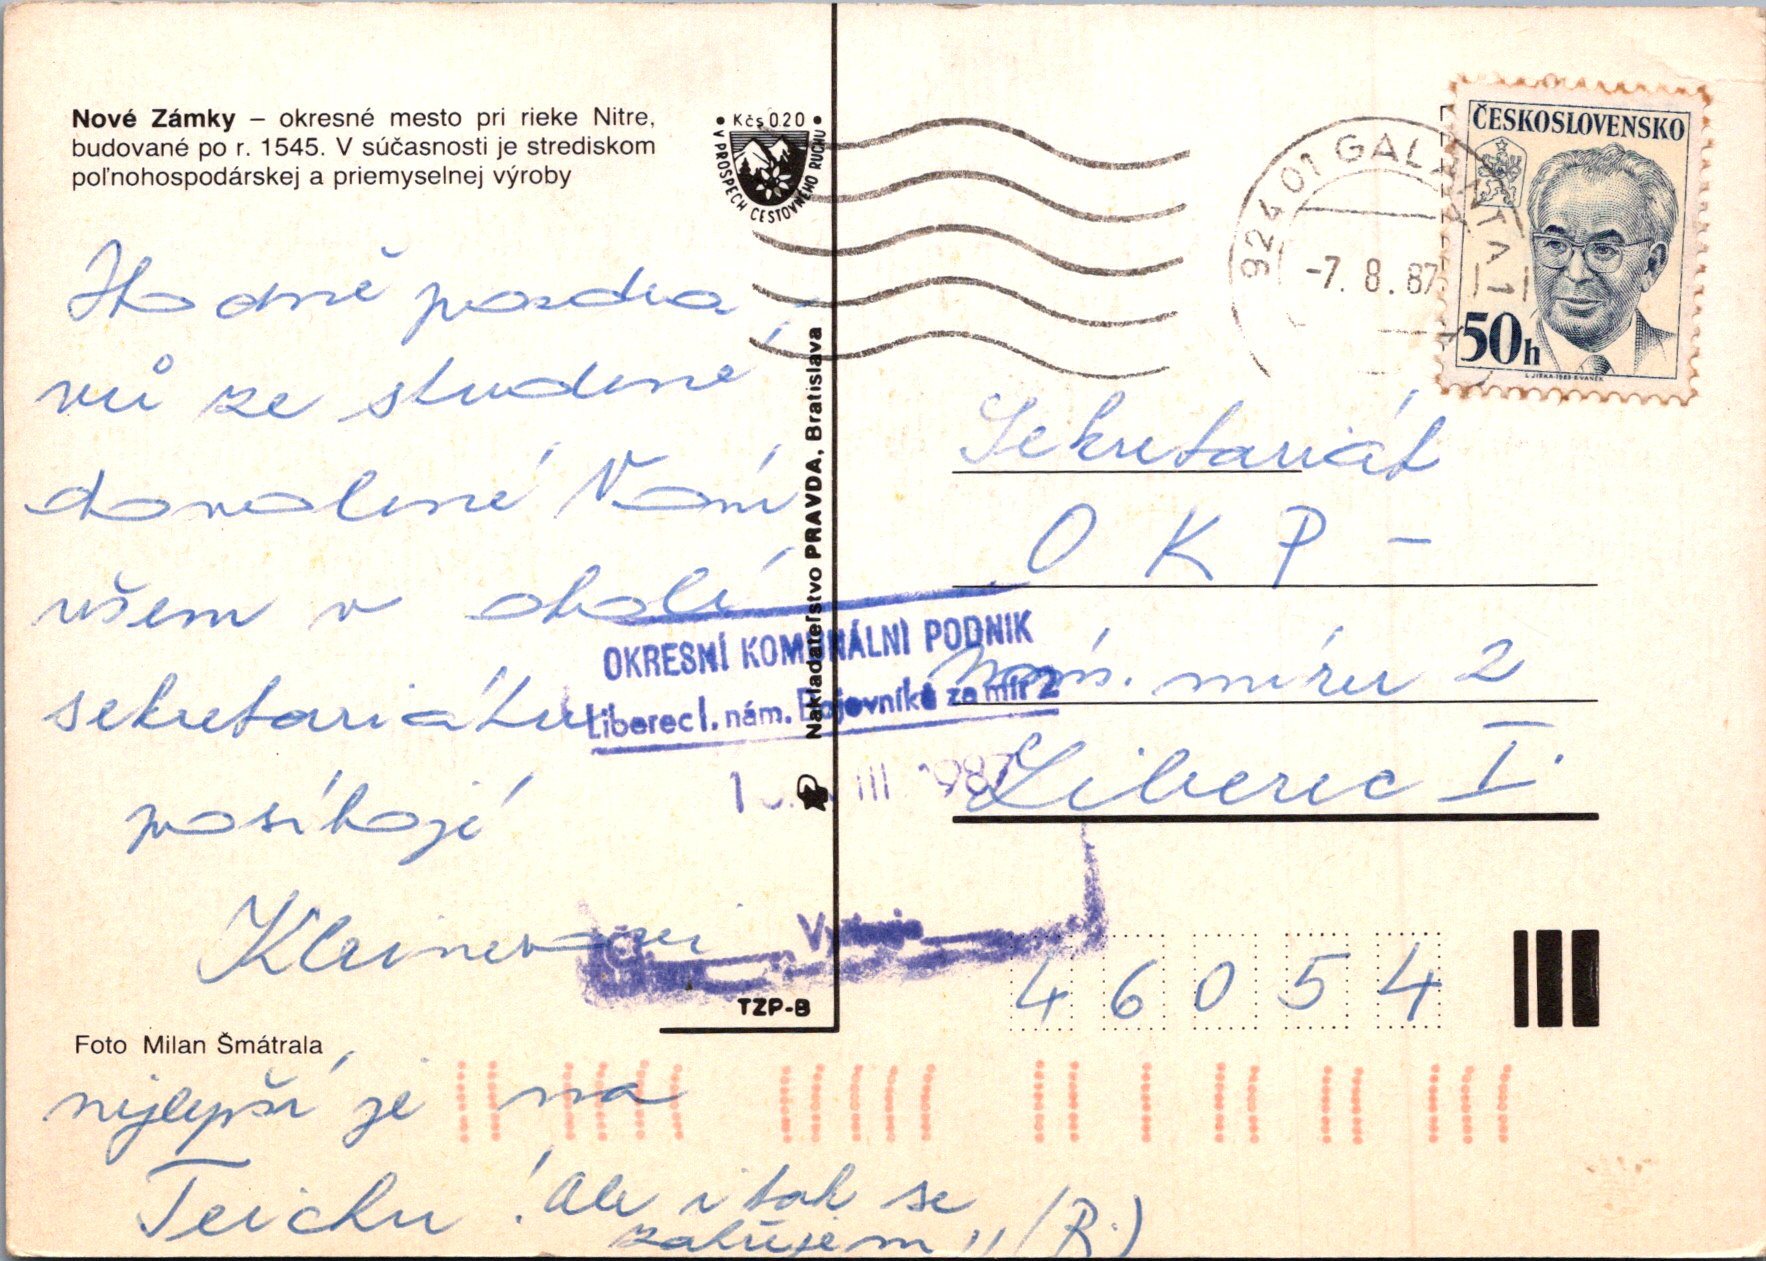 Nové Zámky – okresné mesto pri rieke Nitre,
budované po r. 1545. V súčasnosti je strediskom
poľnohospodárskej a priemyselnej výroby
• Kčs 0.20 •
V PROSPECH CESTOVNÉHO RUCHU
Hodně pozdra-
vů ze studené
dovolené Vám
všem v okolí
sekretariátu
posílají
Kleinerovi
Foto Milan Šmátrala
nejlepší je na
Teichu! Ale i tak se
zahřejem,, (R.)
Nakladateľstvo PRAVDA, Bratislava
TZP-8
924 01 GALANTA 1
-7. 8. 87
ČESKOSLOVENSKO
50h
L. JIRKA-1983-B. VANĚK
Sekretariát
O K P -
nám. míru 2
Liberec I.
OKRESNÍ KOMUNÁLNÍ PODNIK
Liberec I. nám. Bojovníků za mír 2
1987
Vyřizuje
460 54